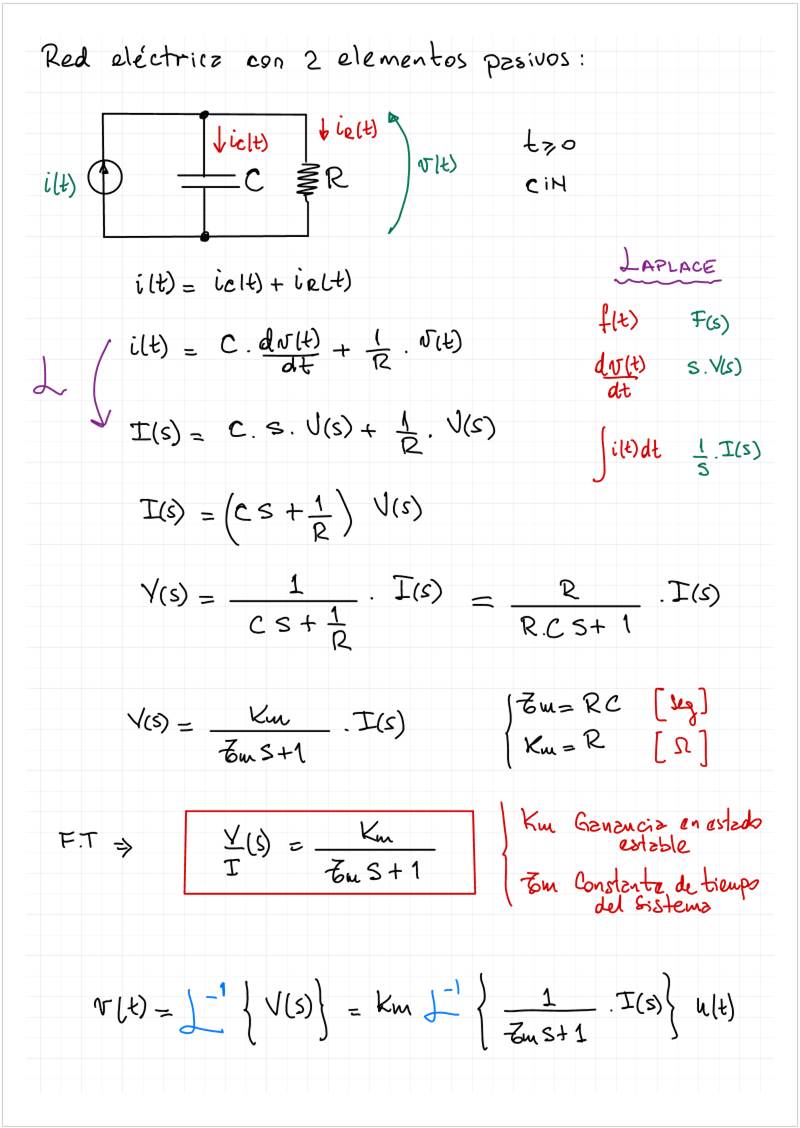 Red eléctrica con 2 elementos pasivos:
i(t)
↓ ic(t)
C
↓ iR(t)
R
v(t)
t≥0
CiN
i(t) = ic(t) + iR(t)
LAPLACE
f(t) F(s)
dv(t)/dt s.V(s)
∫i(t)dt 1/s . I(s)
ℒ
i(t) = C . dv(t)/dt + 1/R . v(t)
I(s) = C. s. V(s) + 1/R . V(s)
I(s) = (C S + 1/R) V(s)
V(s) = 1/(C S + 1/R) . I(s) = R/(R.C S + 1) . I(s)
V(s) = Km/(τm S+1) . I(s)
τm = RC [seg]
Km = R [Ω]
F.T ⇒ V/I (s) = Km/(τm S + 1)
Km Ganancia en estado
estable
τm Constante de tiempo
del sistema
v(t) = ℒ⁻¹ {V(s)} = Km ℒ⁻¹ {1/(τm S+1) . I(s)} u(t)